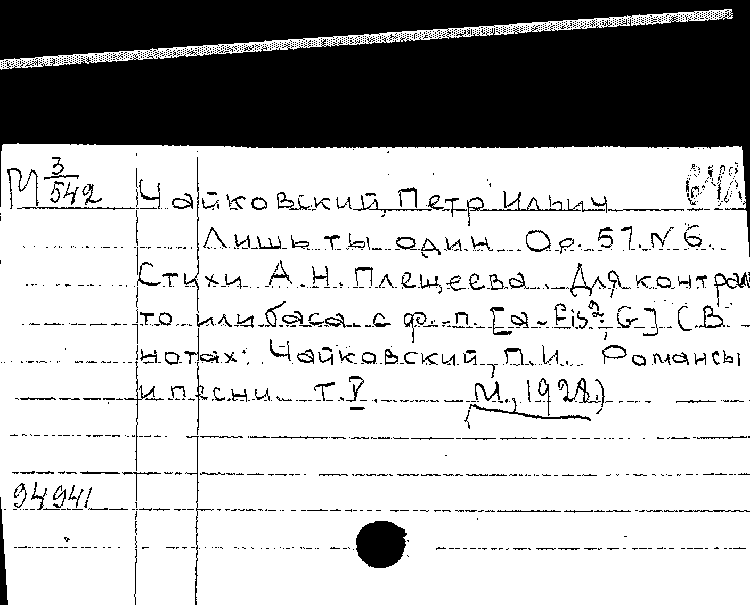 М 3/542
Чайковский, Петр Ильич
Лишь ты один. Ор. 57. N 6.
Стихи А. Н. Плещеева. Для контраль
то или баса с ф.-п. [a-Eis²; G] (В
нотах: Чайковский, П.И. Романсы
и песни. Т. V. М., 1928.)
94941